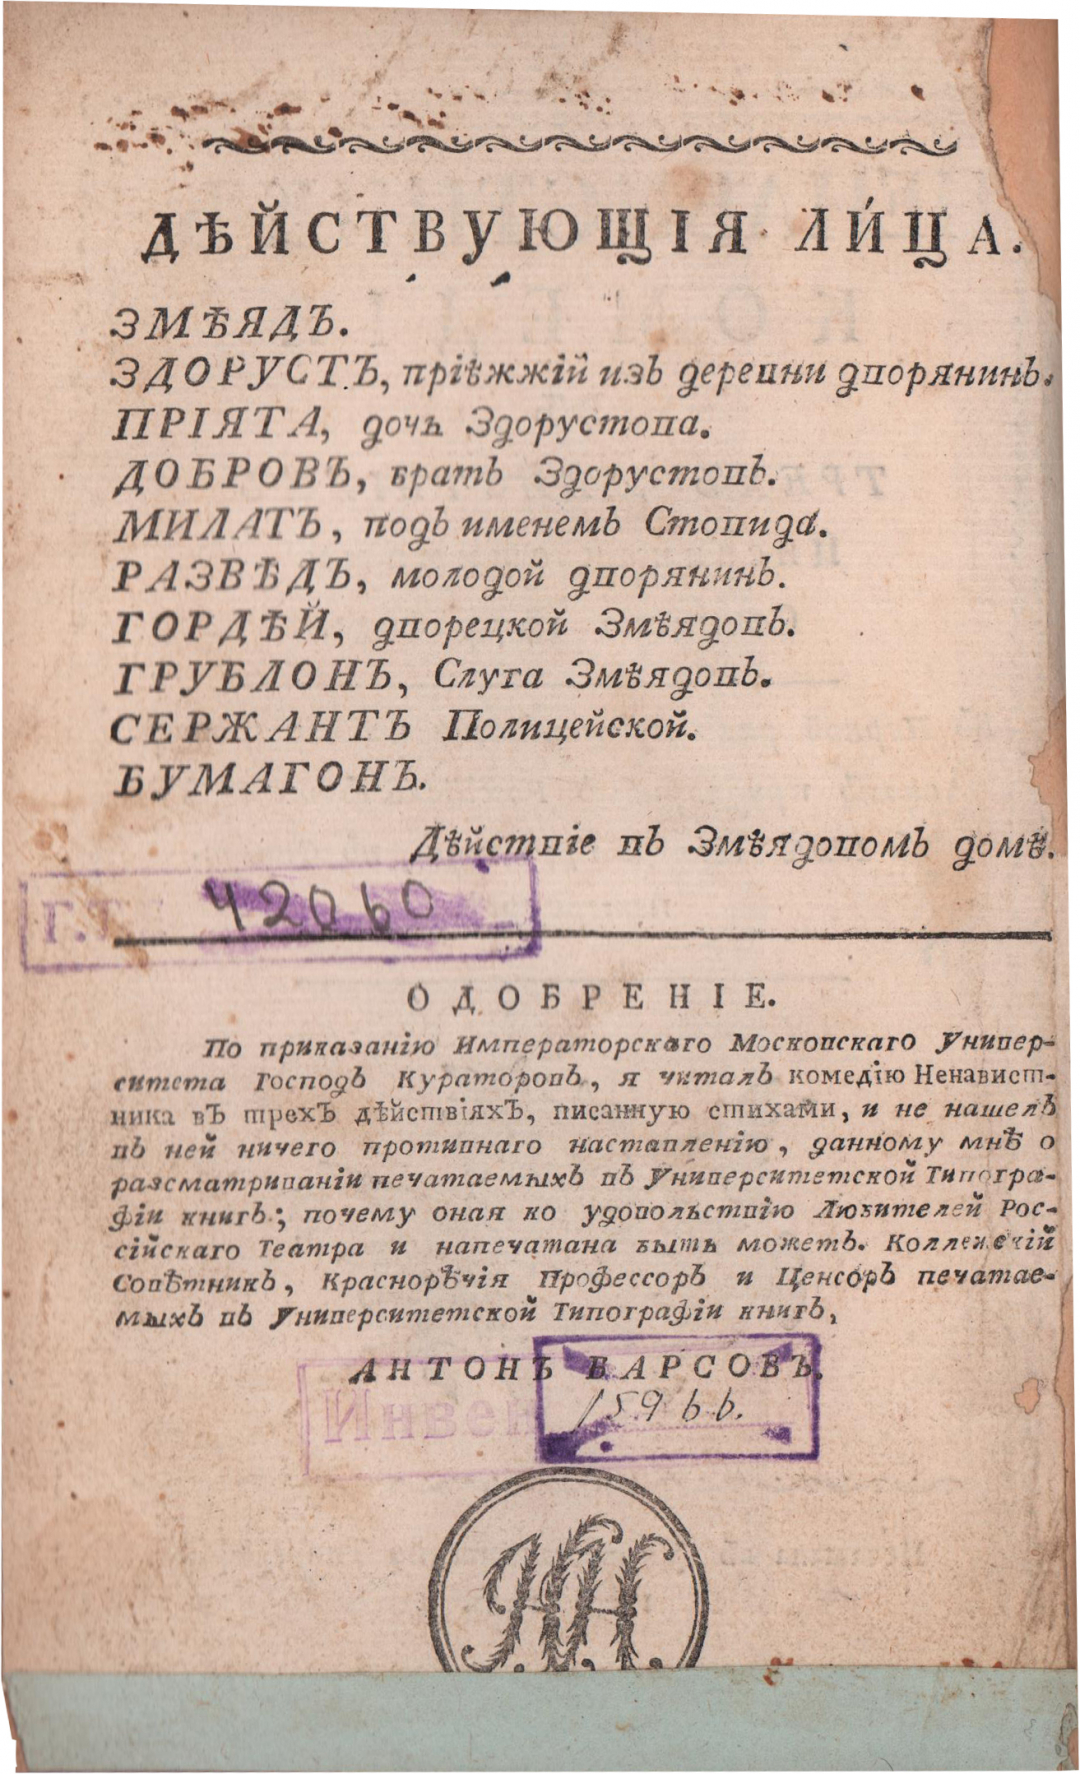 ДѢЙСТВУЮЩІЯ ЛИ́ЦА.
ЗМѢЯДЪ.
ЗДОРУСТЪ, пріѣжжій изъ деревни дворянинъ.
ПРІЯТА, дочь Здорустова.
ДОБРОВЪ, братъ Здорустовъ.
МИЛАТЪ, подъ именемъ Стовида.
РАЗВѢДЪ, молодой дворянинъ.
ГОРДѢЙ, дворецкой Змѣядовъ.
ГРУБЛОНЪ, Слуга Змѣядовъ.
СЕРЖАНТЪ Полицейской.
БУМАГОНЪ.
Дѣйствіе въ Змѣядовомъ домѣ.
42060
ОДОБРЕНІЕ.
По приказанію Императорскаго Московскаго Универ-
ситета Господъ Кураторовъ, я читалъ комедію Ненавист-
ника въ трехъ дѣйствіяхъ, писанную стихами, и не нашелъ
въ ней ничего противнаго наставленію, данному мнѣ о
разсматриваніи печатаемыхъ въ Университетской Типогра-
фіи книгъ; почему оная ко удовольствію Любителей Рос-
сійскаго Театра и напечатана быть можетъ. Коллежскій
Совѣтникъ, Краснорѣчія Профессоръ и Ценсоръ печатае-
мыхъ въ Университетской Типографіи книгъ,
АНТОНЪ БАРСОВЪ.
Инвен
15966.